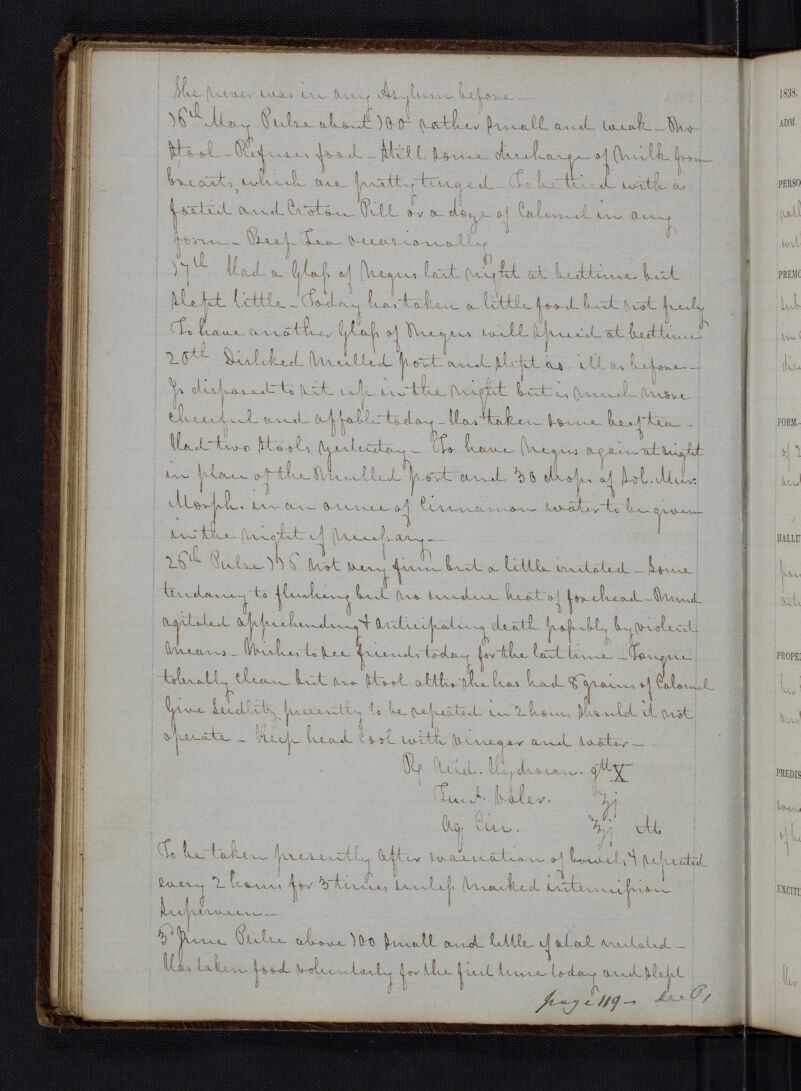 She never was in any Asylum before —
16th May Pulse about 100 rather small and weak — No
Stool — Refuses food — Still some discharge of Milk from
breasts, which are pretty turged — To be tried with a
foetid and Croton Pill or a doze of Calomel in any
form — Beef Tea occasionally
17th Had a Glass of Negus last night at bedtime but
slept little — Today has taken a little food but not freely
To have another Glass of Negus well spiced at bedtime
20th Disliked Mulled port and slept as ill as before —
Is disposed to sit up in the night but is much more
cheerful and affable today — Has taken some beef tea —
Had two Stools yesterday — To have Negus again at night
in place of the Mulled port and 30 drops of Sol. Mur.
Morph. in an ounce of Cinnamon water to be given
in the night if necessary —
26th Pulse 116 not very firm but a little irritated — Some
tendancy to flushing but no undue heat of forehead — Mind
agitated apprehending & anticipating death possibly by violent
means — Wishes to see friends today for the last time — Tongue
tolerably clean but no stool altho' she has had 8 grains of Calomel
Give Seidlitz presently to be repeated in 2 hours should it not
operate — Keep head cool with vinegar and water —
℞ Acid. Hydrocian. gtt X
Tinct. Valer. ʒj
Aq Cin. ℥j M
To be taken presently after evacuation of bowels & repeated
every 2 hours for 3 times unless marked intermission
supervene —
3d June Pulse above 100 small and little if atal irritated —
Has taken food voluntarily for the first time today and slept
page 119 — See P/
1838.
ADM.
PERSO
PREMO
FORM.
HALLU
PROPE
PREDIS
EXCITI